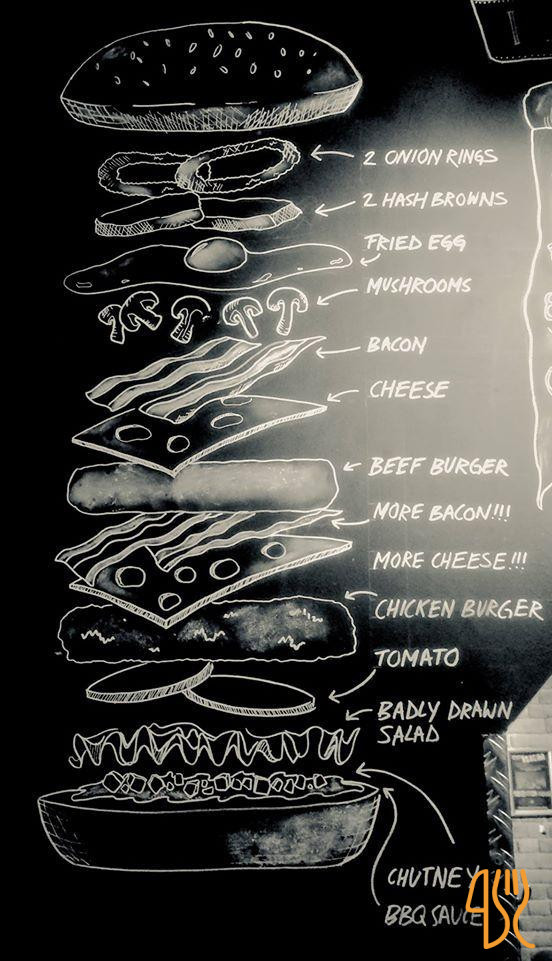 2 ONION RINGS
2 HASH BROWNS
FRIED EGG
MUSHROOMS
BACON
CHEESE
BEEF BURGER
MORE BACON!!!
MORE CHEESE!!!
CHICKEN BURGER
TOMATO
BADLY DRAWN
SALAD
CHUTNEY
BBQ SAUCE